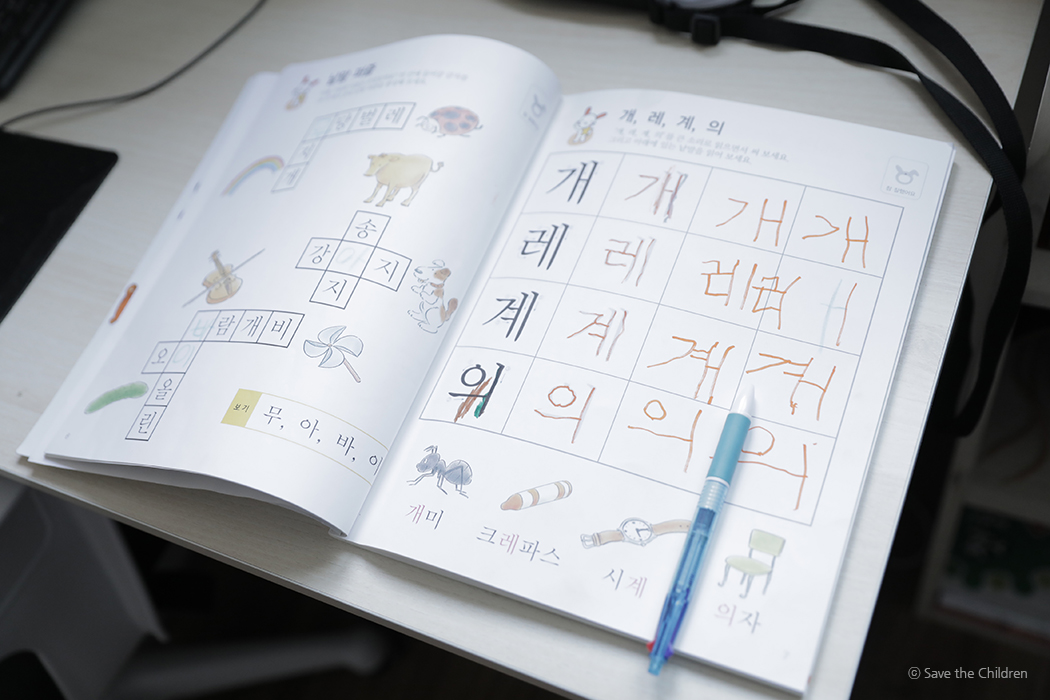 당벌레
지
개
송
강아지
지
바람개비
오이
올
린
보기 무, 아, 바, 이
개, 레, 계, 의
개 개 개 개
레 레 레 레
계 계 계 계
의 의 의 의
개미
크레파스
시계
의자
ⓒ Save the Children